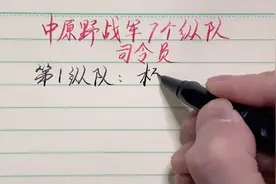 中原野战军7个纵队
司令员
第1纵队：杨